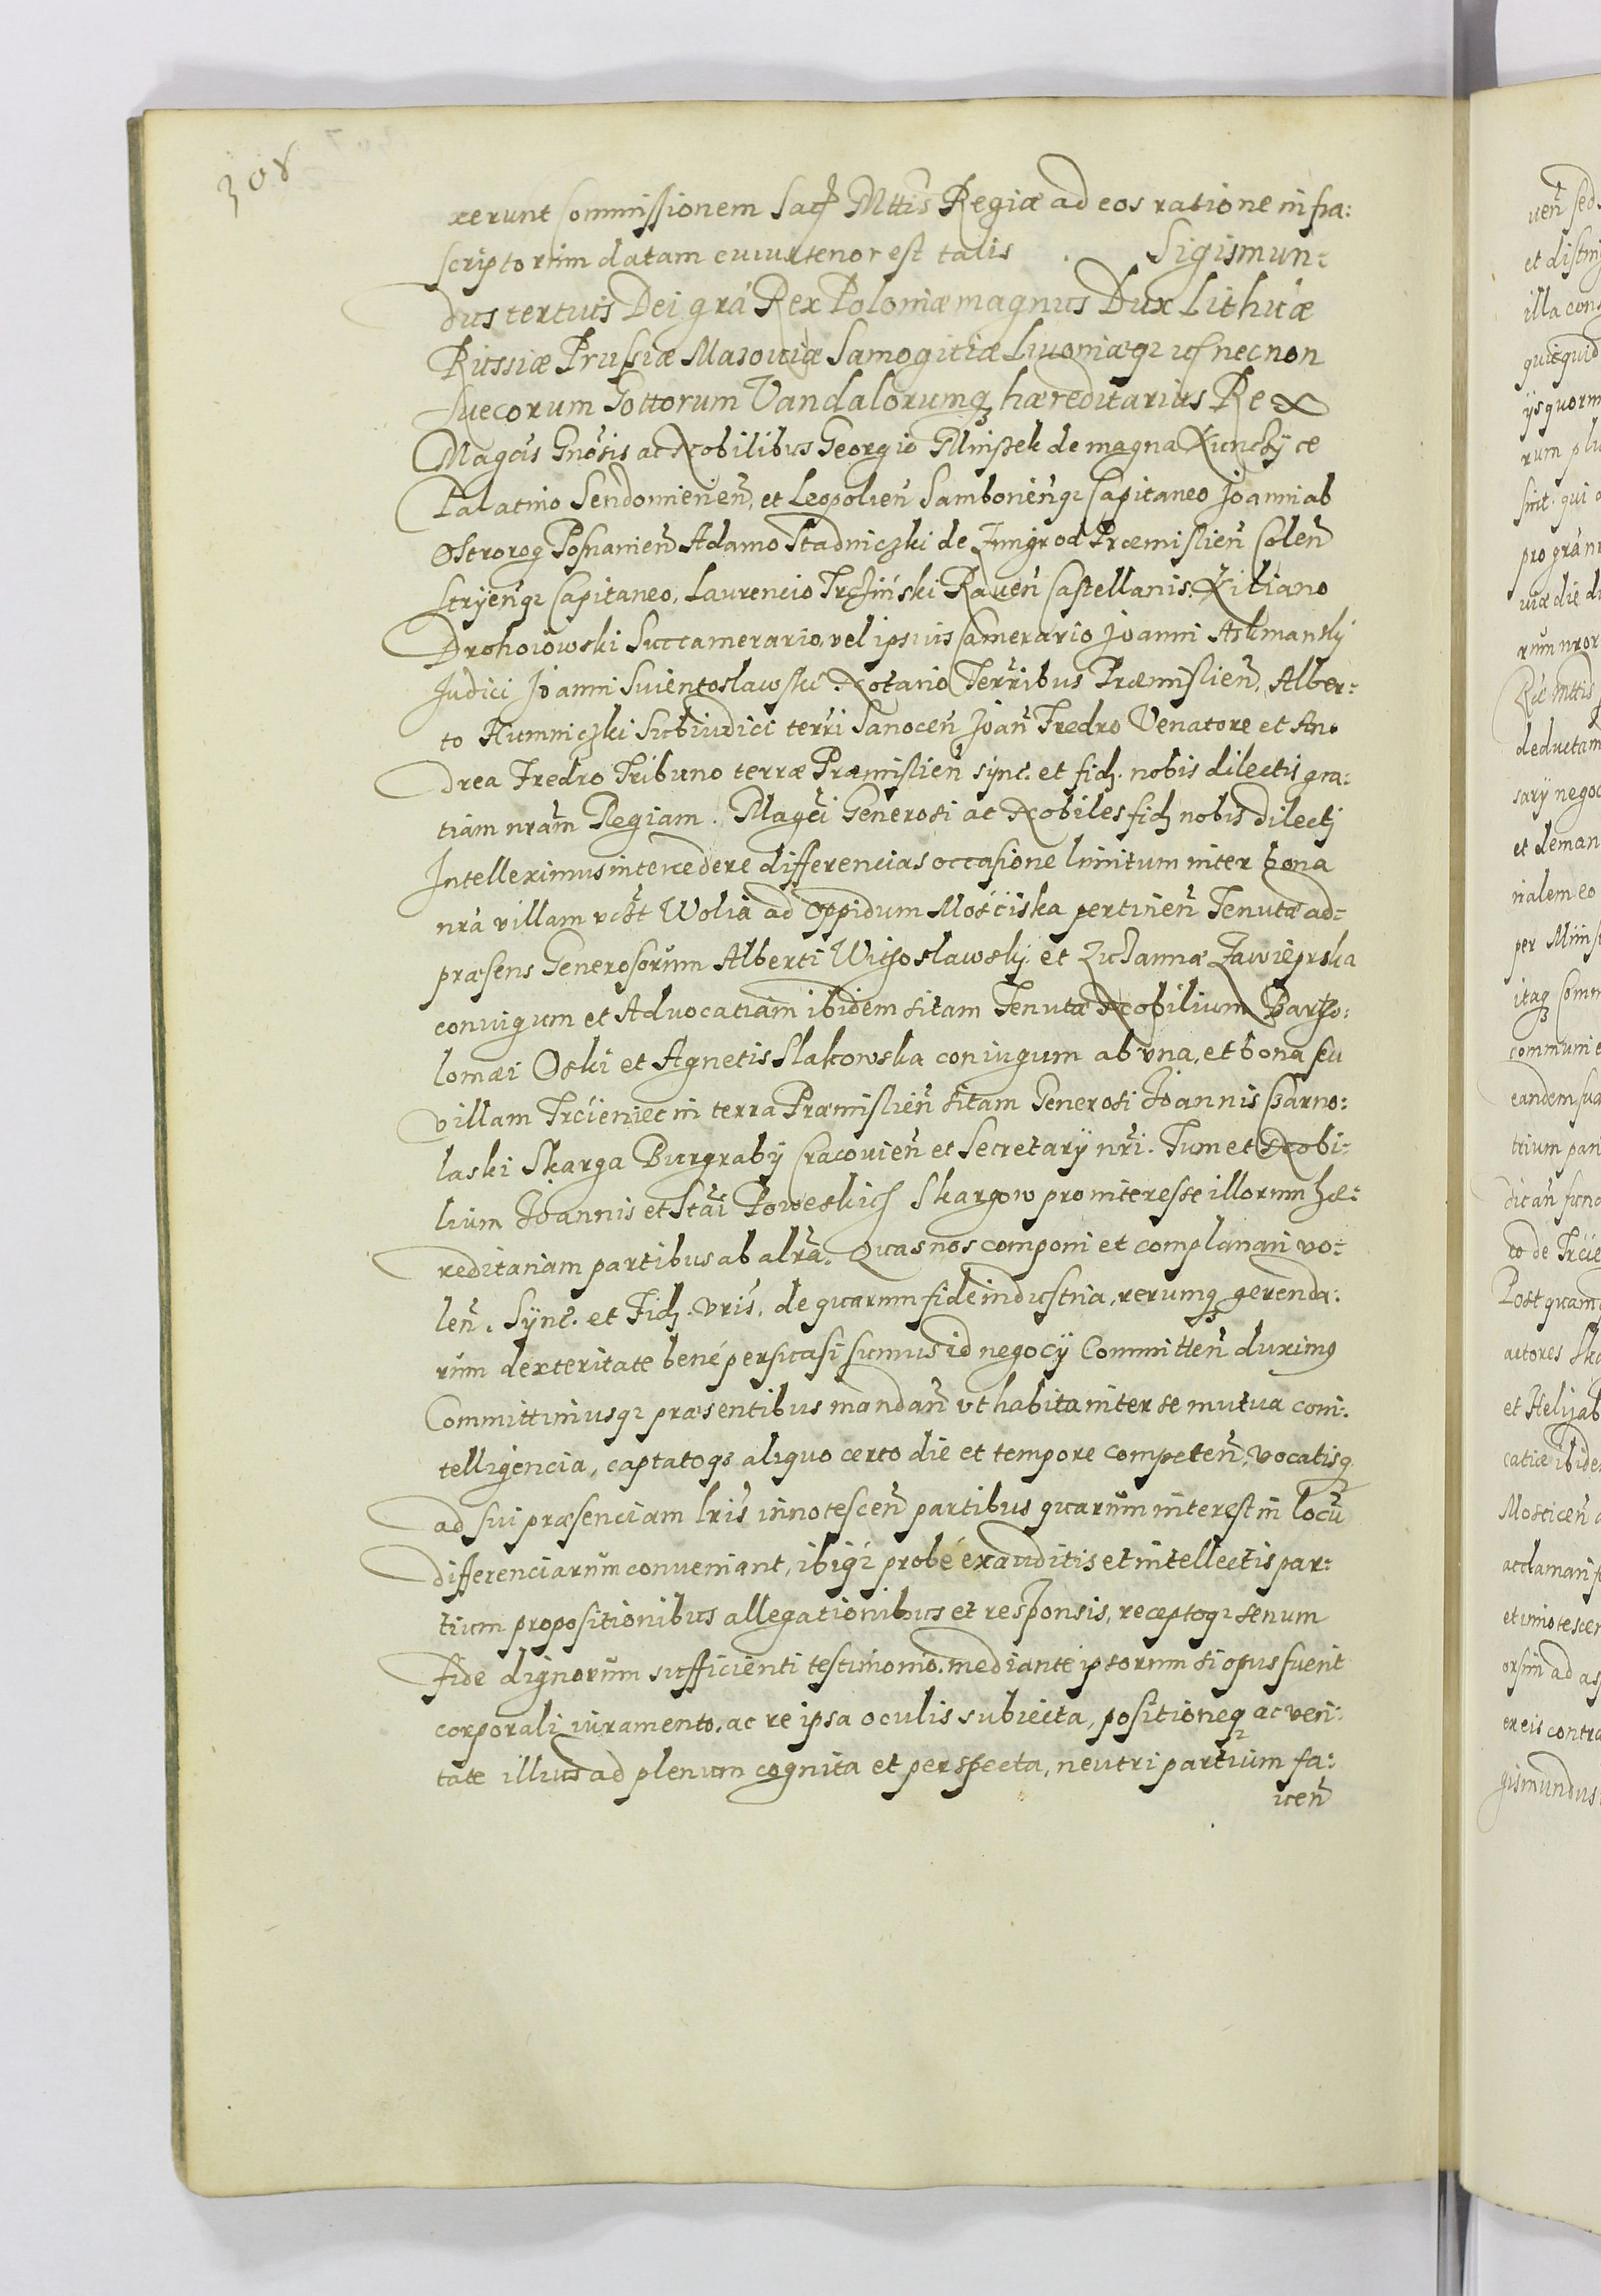 308
xerunt Commissionem Sacr Mttis Regiæ ad eos ratione infra:
scriptorum datam cuius tenor est talis . Sigismun:
dus tertius Dei gra Rex Poloniæ magnus Dux Lithuæ
Russiæ Prussiæ Masouiæ Samogitiæ Liuoniæq nec non
Suecorum Gottorum Vandalorumq hæreditarius Rex
Magcis Gnosis ac Nobilibus Georgio Mniszek de magna Kunczyce
Palatino Sendomirien, et Leopolien Samborienq Capitaneo Joanni ab
Ostrorog Posnanien Adamo Stadniczki de Zmigrod Præmislien Colen
Stryenq Capitaneo, Laurencio Rauen Castellanis. Kiliano
Drohoiowski Succamerario, vel ipsius Camerario Joanni
Judici Joanni Swientoslawski Notario Terribus Præmislien, Alber:
to Humniczki Subiudici terri Sanocen Joan Fredro Venatore et An:
drea Fredro Tribuno terræ Præmislien sync. et fid. nobis dilectis gra:
tiam nram Regiam. Magci Generosi ac Nobiles fid nobis dilecti
Intelleximus intercedere differencias occasione limitum inter bona
nra villam Wolia ad Oppidum Mościska pertinen Tenutæ ad:
præsens Generosorum Alberti et Zuzannæ
coniugum et Aduocatiam ibidem sitam Tenutæ Nobilium Bartho:
lomæi Oski et Agnetis Slakowska coniugum ab vna, et bona seu
villam Trcieniec in terra Præmislien sitam Generosi Joannis Barno:
laski Skarga Burgraby Cracouien et Secretary nri. Tum et Nobi:
lium Joannis et Stai Poweskich Skargow pro interesse illorum hæ:
reditariam partibus ab alra. Quas nos componi et complanari vo:
len. Sync. et Fid. vris. de quarum fide industria, rerumq gerenda:
rum dexteritate bené persuasi sumus id negocy Committen duximus
Committimusq præsentibus mandan vt habita inter se mutua coni:
telligencia, captatoq aliquo certo die et tempore competen, vocatisq
ad sui præsenciam lris innotescen partibus quarum interest in locu
differenciarum conueniant, ibiq probé exauditis et intellectis par:
tium propositionibus allegationibus et responsis, receptoq senum
fide dignorum sufficienti testimonio, mediante ipsorum si opus fuerit
corporali iuramento, ac re ipsa oculis subiecta, positioneq ac veri:
tate illius ad plenum cognita et perspecta, neutri partium fa:
uen